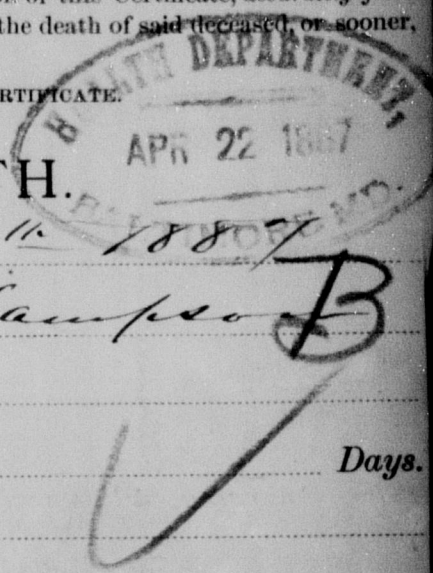 the death of said deceased, or sooner,
RTIFICATE.
HEALTH DEPARTMENT,
APR 22 1887
BALTIMORE MD.
TH.
1887
ampson B
Days.